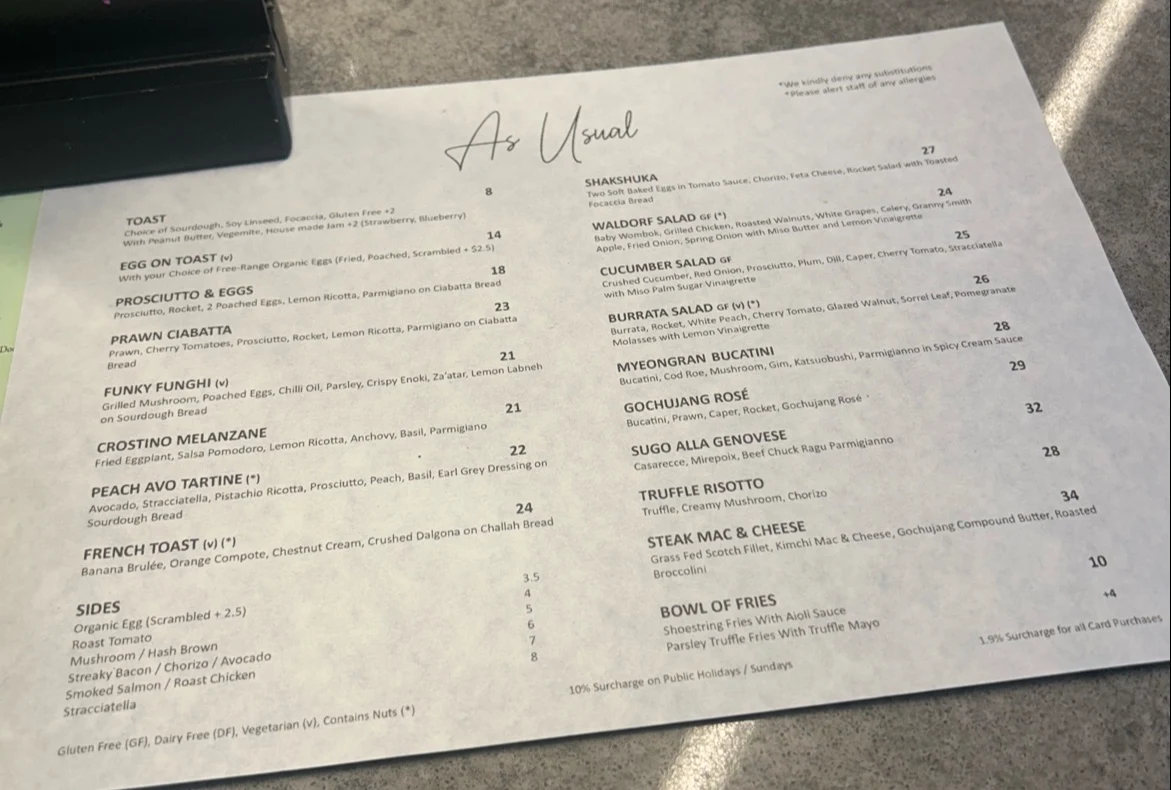 *We kindly deny any substitutions
*Please alert staff of any allergies
As Usual
TOAST 8
Choice of Sourdough, Soy Linseed, Focaccia, Gluten Free +2
With Peanut Butter, Vegemite, House made Jam +2 (Strawberry, Blueberry)
EGG ON TOAST (v) 14
With your Choice of Free-Range Organic Eggs (Fried, Poached, Scrambled + $2.5)
PROSCIUTTO & EGGS 18
Prosciutto, Rocket, 2 Poached Eggs, Lemon Ricotta, Parmigiano on Ciabatta Bread
PRAWN CIABATTA 23
Prawn, Cherry Tomatoes, Prosciutto, Rocket, Lemon Ricotta, Parmigiano on Ciabatta
Bread
FUNKY FUNGHI (v) 21
Grilled Mushroom, Poached Eggs, Chilli Oil, Parsley, Crispy Enoki, Za'atar, Lemon Labneh
on Sourdough Bread
CROSTINO MELANZANE 21
Fried Eggplant, Salsa Pomodoro, Lemon Ricotta, Anchovy, Basil, Parmigiano
PEACH AVO TARTINE (*) 22
Avocado, Stracciatella, Pistachio Ricotta, Prosciutto, Peach, Basil, Earl Grey Dressing on
Sourdough Bread
FRENCH TOAST (v) (*) 24
Banana Brulée, Orange Compote, Chestnut Cream, Crushed Dalgona on Challah Bread
SIDES
Organic Egg (Scrambled + 2.5) 3.5
Roast Tomato 4
Mushroom / Hash Brown 5
Streaky Bacon / Chorizo / Avocado 6
Smoked Salmon / Roast Chicken 7
Stracciatella 8
Gluten Free (GF), Dairy Free (DF), Vegetarian (v), Contains Nuts (*)
SHAKSHUKA 27
Two Soft Baked Eggs in Tomato Sauce, Chorizo, Feta Cheese, Rocket Salad with Toasted
Focaccia Bread
WALDORF SALAD GF (*) 24
Baby Wombok, Grilled Chicken, Roasted Walnuts, White Grapes, Celery, Granny Smith
Apple, Fried Onion, Spring Onion with Miso Butter and Lemon Vinaigrette
CUCUMBER SALAD GF 25
Crushed Cucumber, Red Onion, Prosciutto, Plum, Dill, Caper, Cherry Tomato, Stracciatella
with Miso Palm Sugar Vinaigrette
BURRATA SALAD GF (v) (*) 26
Burrata, Rocket, White Peach, Cherry Tomato, Glazed Walnut, Sorrel Leaf, Pomegranate
Molasses with Lemon Vinaigrette
MYEONGRAN BUCATINI 28
Bucatini, Cod Roe, Mushroom, Gim, Katsuobushi, Parmigianno in Spicy Cream Sauce
GOCHUJANG ROSÉ 29
Bucatini, Prawn, Caper, Rocket, Gochujang Rosé
SUGO ALLA GENOVESE 32
Casarecce, Mirepoix, Beef Chuck Ragu Parmigianno
TRUFFLE RISOTTO 28
Truffle, Creamy Mushroom, Chorizo
STEAK MAC & CHEESE 34
Grass Fed Scotch Fillet, Kimchi Mac & Cheese, Gochujang Compound Butter, Roasted
Broccolini
BOWL OF FRIES 10
Shoestring Fries With Aioli Sauce
Parsley Truffle Fries With Truffle Mayo +4
10% Surcharge on Public Holidays / Sundays
1.9% Surcharge for all Card Purchases